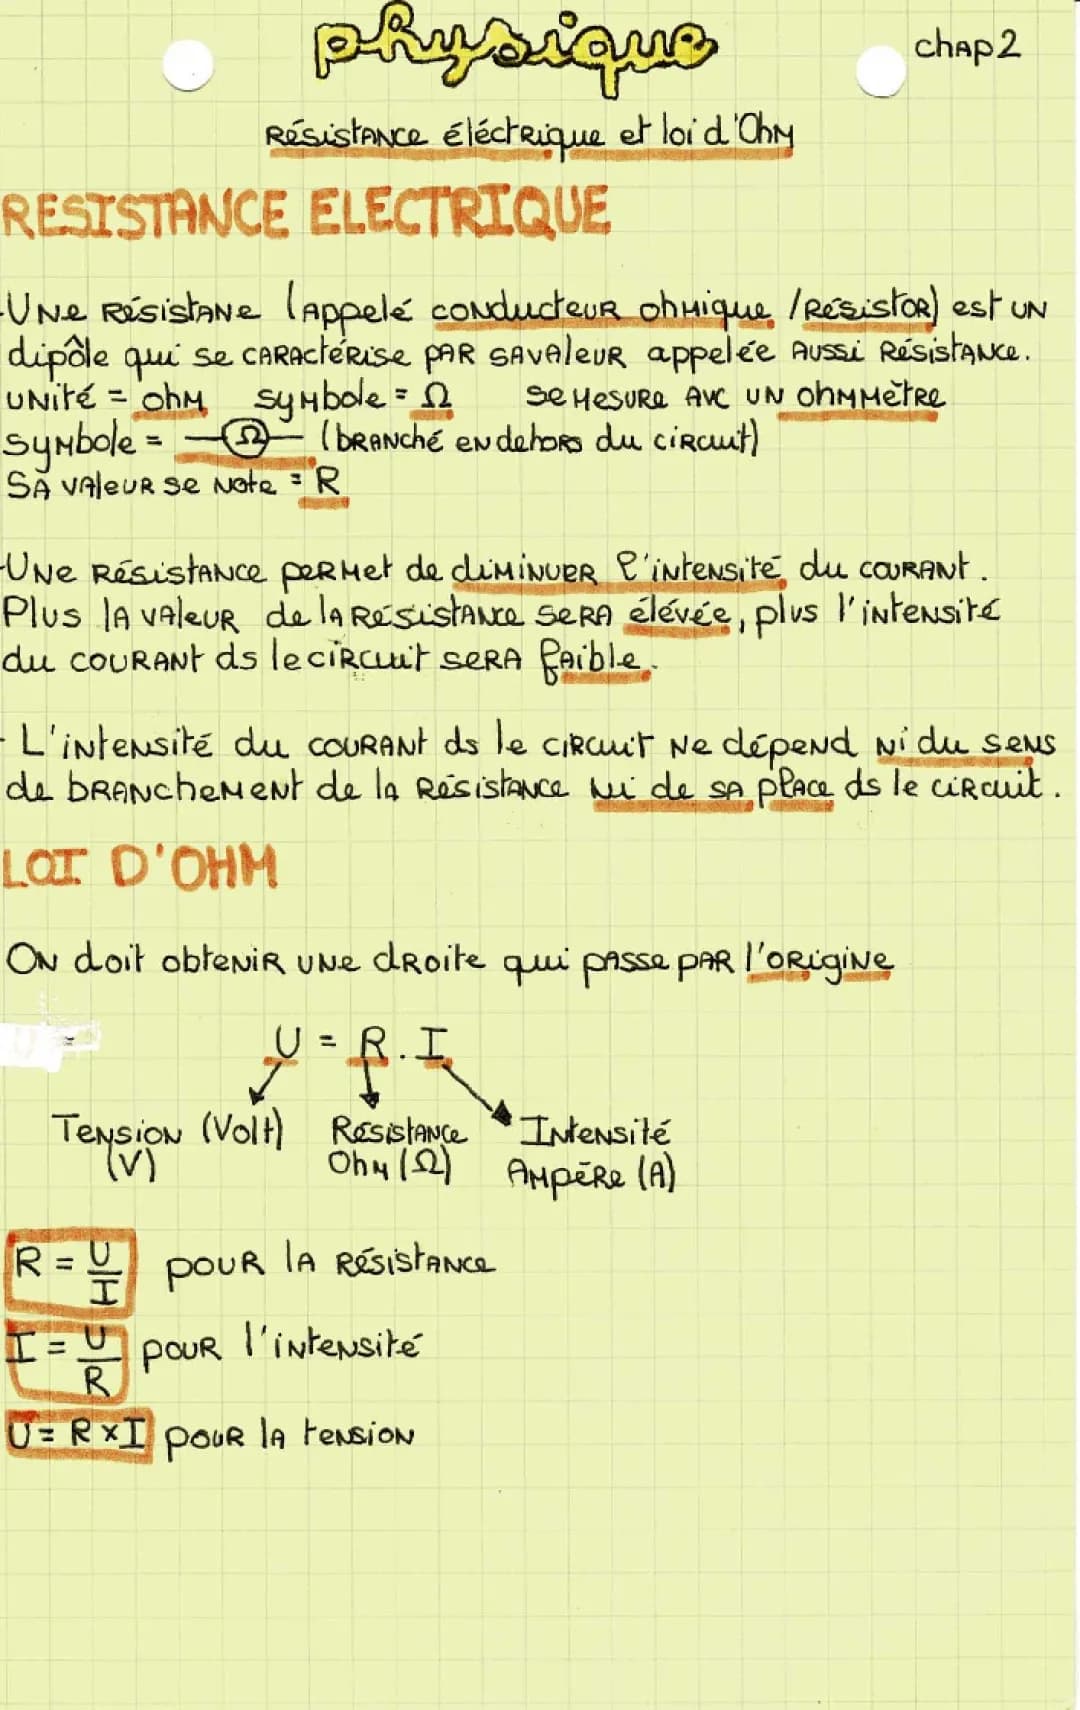 physique
chAp2
Résistance éléctrique et loi d'Ohm
RESISTANCE ELECTRIQUE
-Une résistane (appelé conducteur ohmique /résistor) est un
dipôle qui se caractérise par savaleur appelée aussi résistance.
unité = ohm symbole = Ω se mesure avc un ohmmètre
symbole = Ω (branché en dehors du circuit)
Sa valeur se note = R
-Une résistance permet de diminuer l'intensité du courant.
Plus la valeur de la résistance sera élévée, plus l'intensité
du courant ds le circuit sera faible.
- L'intensité du courant ds le circuit ne dépend ni du sens
de branchement de la résistance ni de sa place ds le circuit.
LOI D'OHM
On doit obtenir une droite qui passe par l'origine
U = R . I
Tension (Volt) Résistance Intensité
(V) Ohm (Ω) Ampère (A)
R = U/I pour la résistance
I = U/R pour l'intensité
U = R x I pour la tension